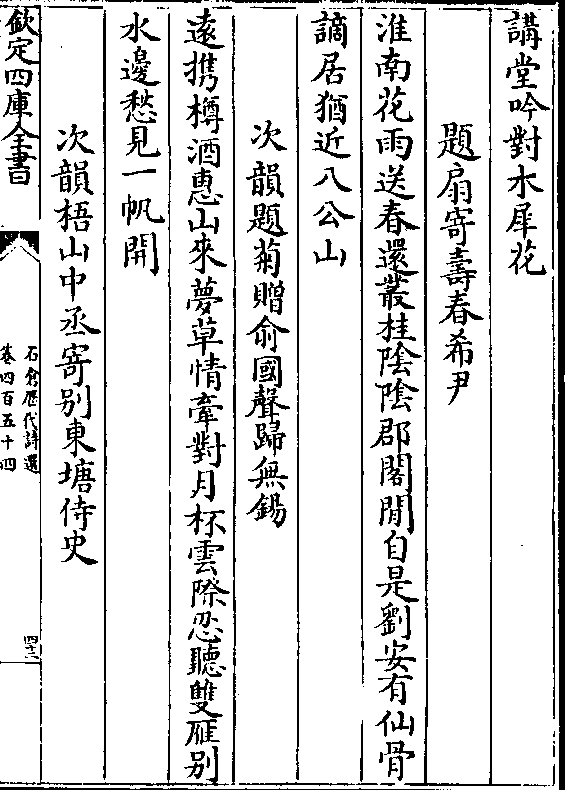 講堂吟對木犀花
題扇寄壽春希尹
淮南花雨送春還叢桂陰陰郡閣閒自是劉安有仙骨
謫居猶近八公山
次韻題菊贈俞國聲歸無錫
遠携樽酒惠山來夢草情牽對月杯雲際忍聽雙雁别
水邊愁見一帆開
次韻梧山中丞寄别東塘侍史
欽定四庫全書
石倉歷代詩選
卷四百五十四
四十二